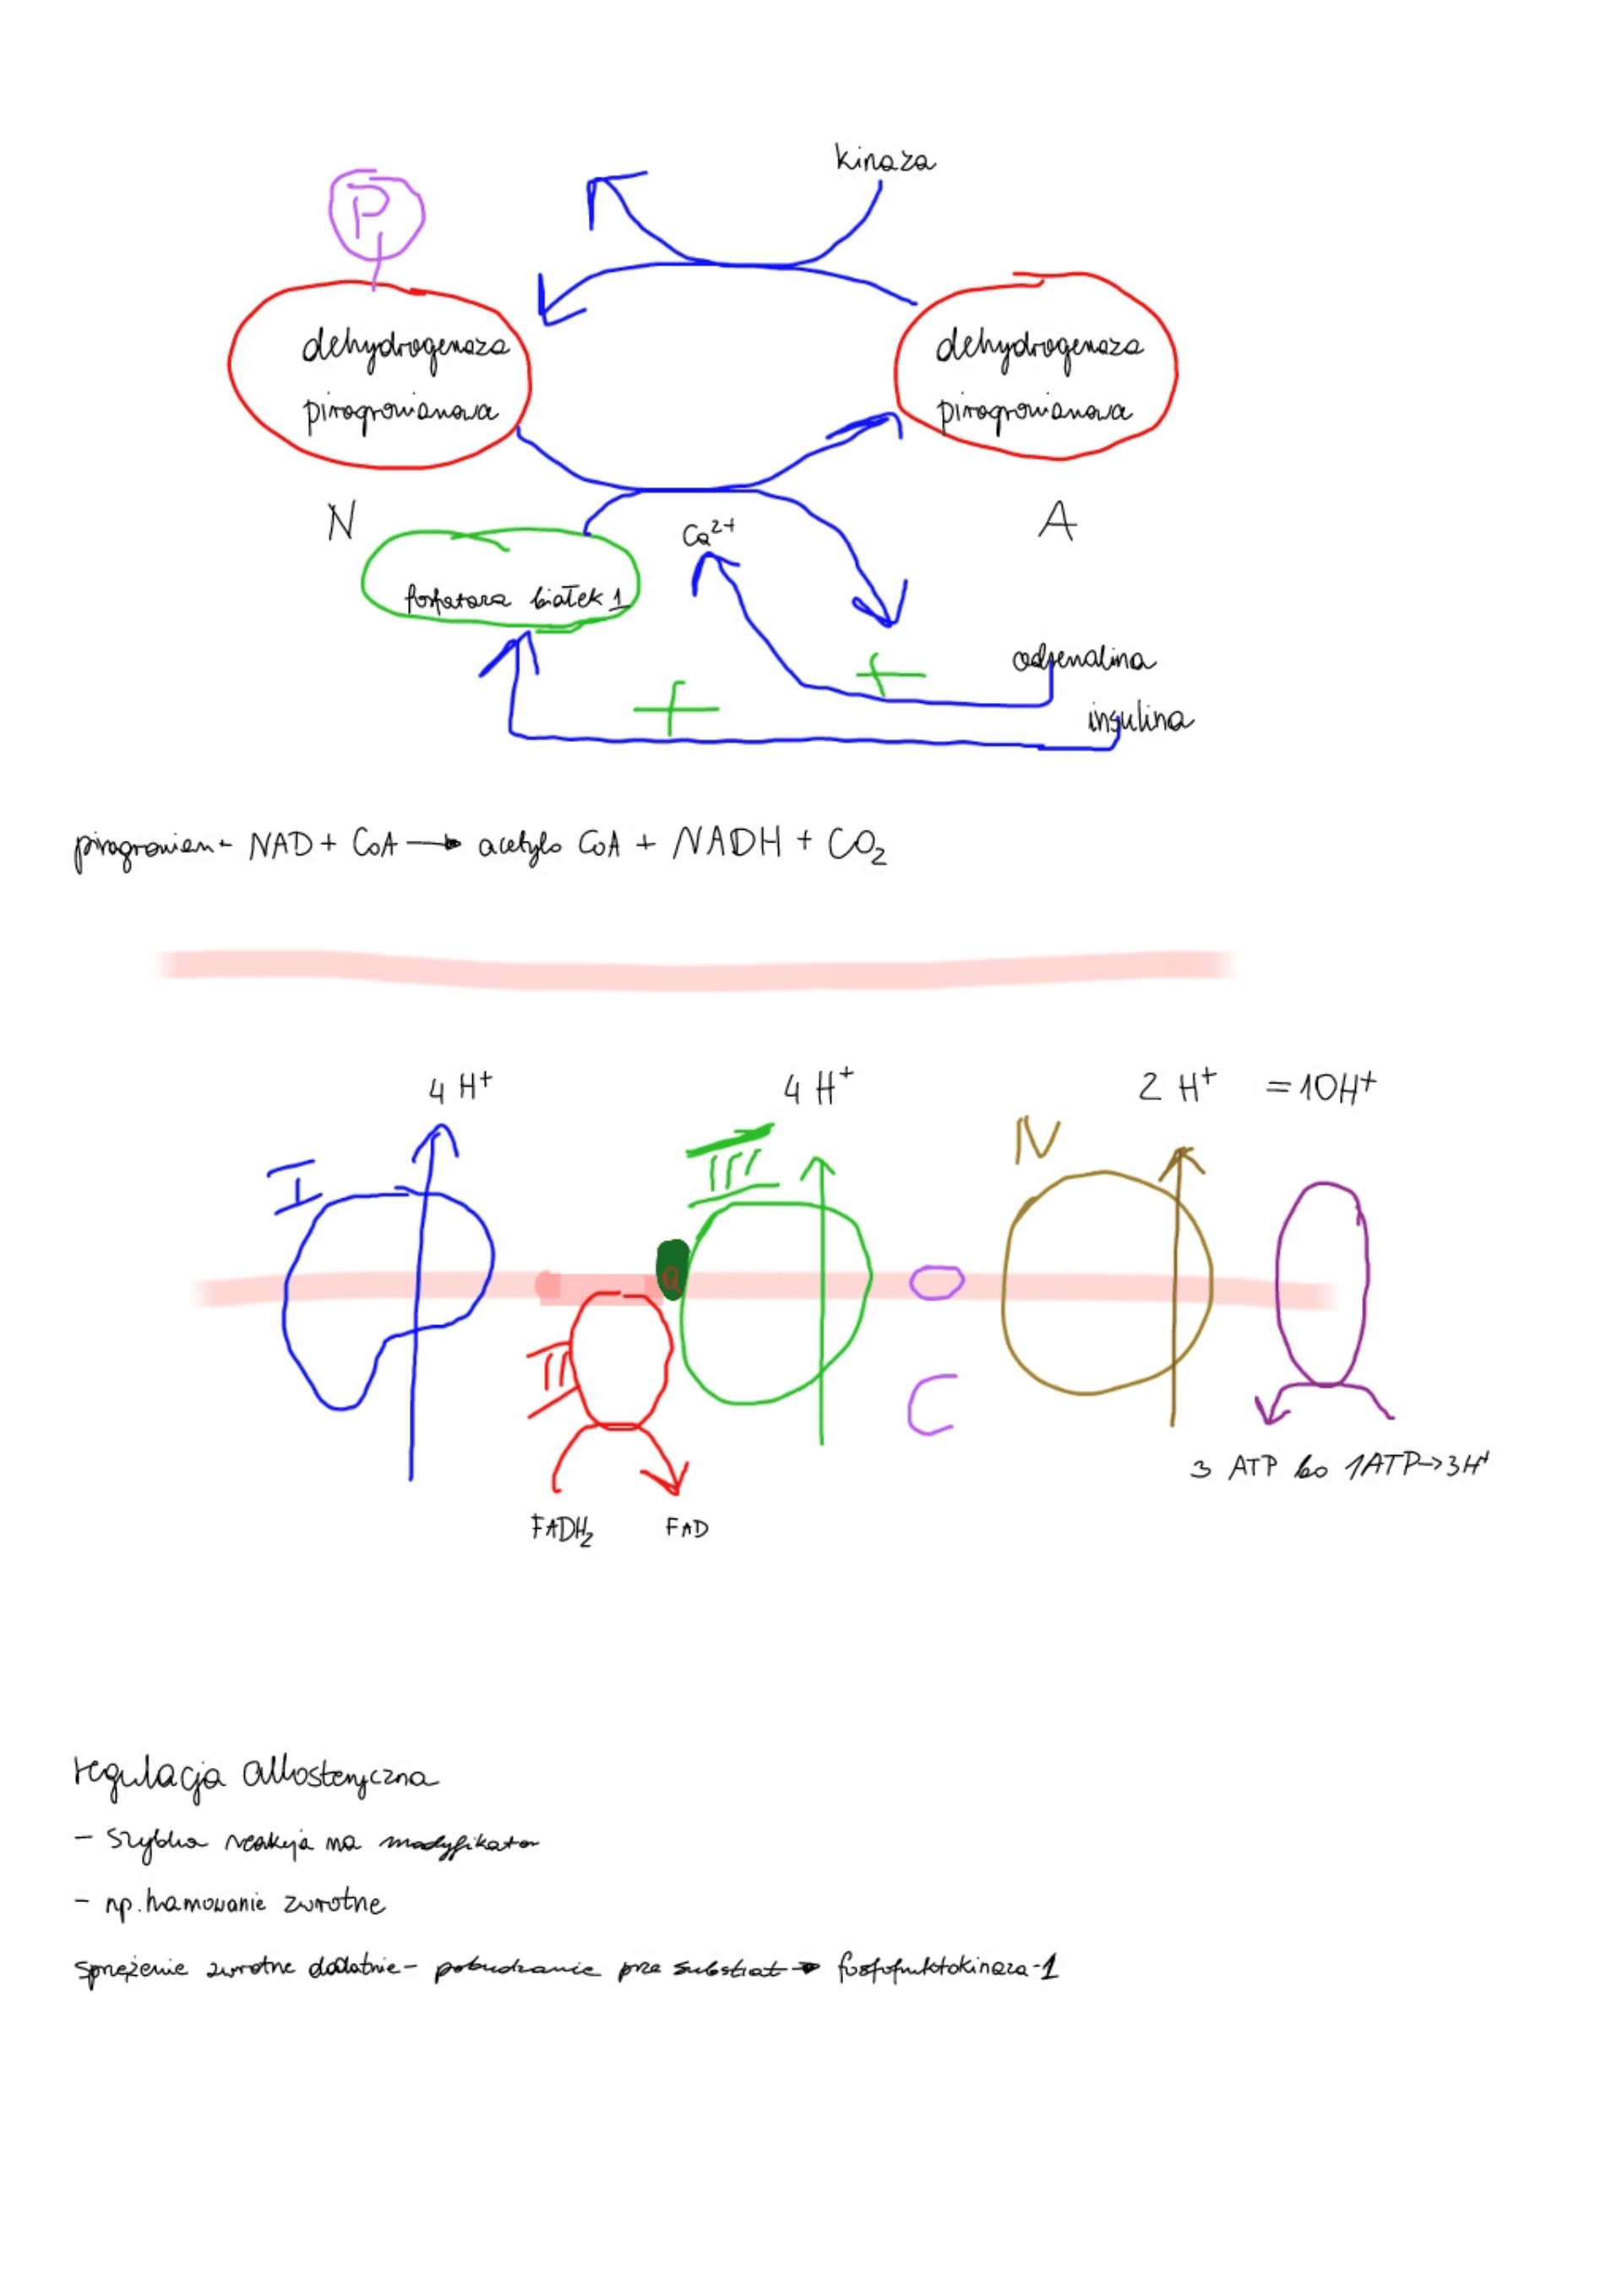 kinaza
P
dehydrogenaza
pirogronianowa
dehydrogenaza
pirogronianowa
N
A
Ca²⁺
fosfataza białek 1
adrenalina
+
+
insulina
pirogronian + NAD + CoA → acetylo CoA + NADH + CO₂
4 H⁺
4 H⁺
2 H⁺ = 10H⁺
I
III
IV
Q
II
C
3 ATP bo 1ATP→3H⁺
FADH₂
FAD
regulacja allosteryczna
- szybka reakcja na modyfikator
- np. hamowanie zwrotne
sprzężenie zwrotne dodatnie - pobudzanie prze substrat → fosfofruktokinaza-1